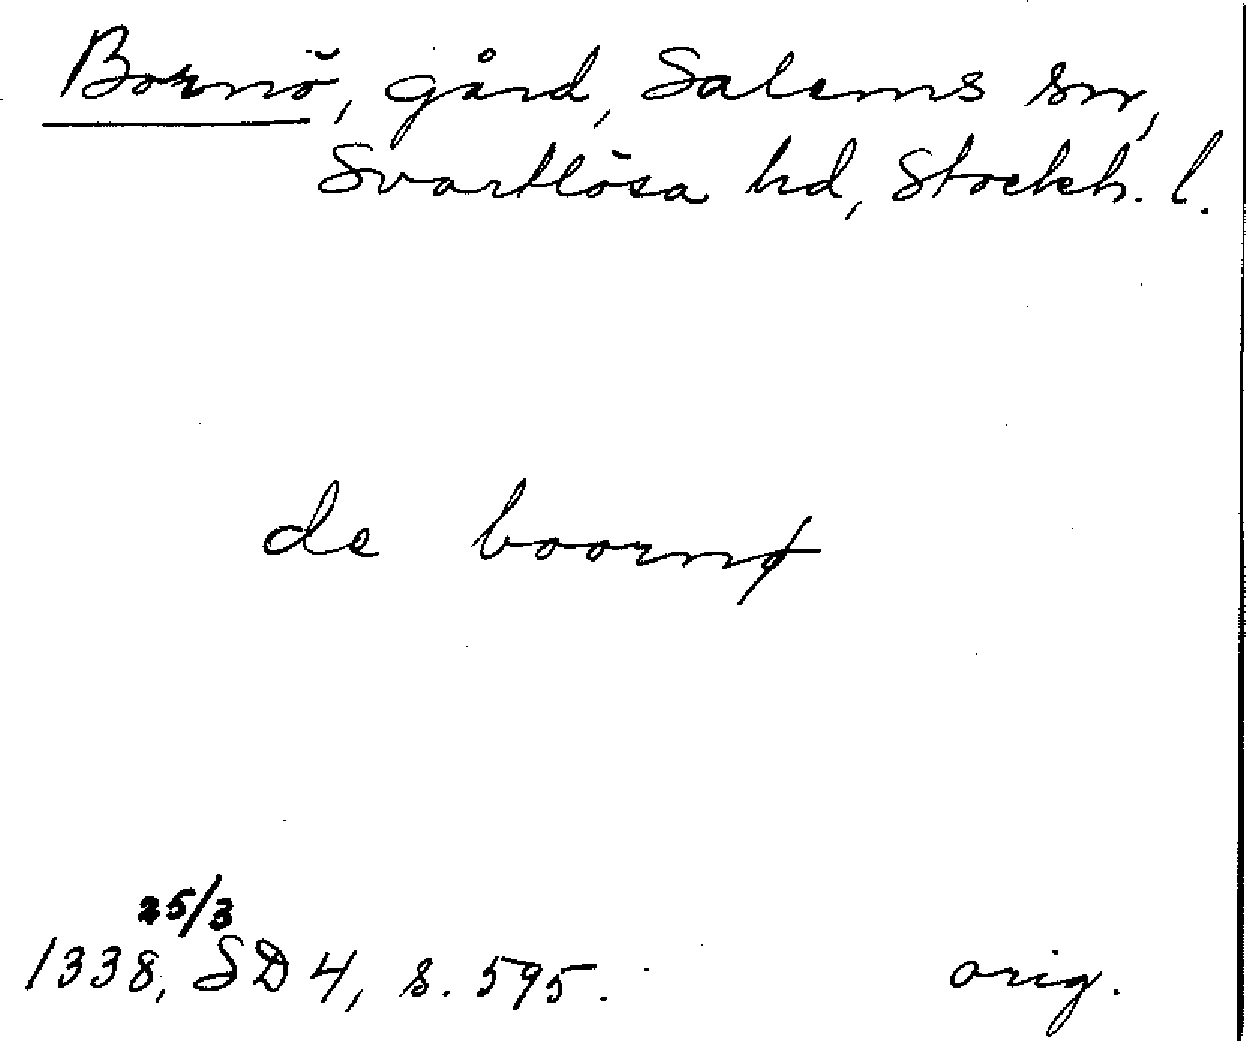 Bornö, gård, Salems sn,
Svartlösa hd, Stockh. l.
de boornø
25/3
1338, SD 4, s. 595.
orig.